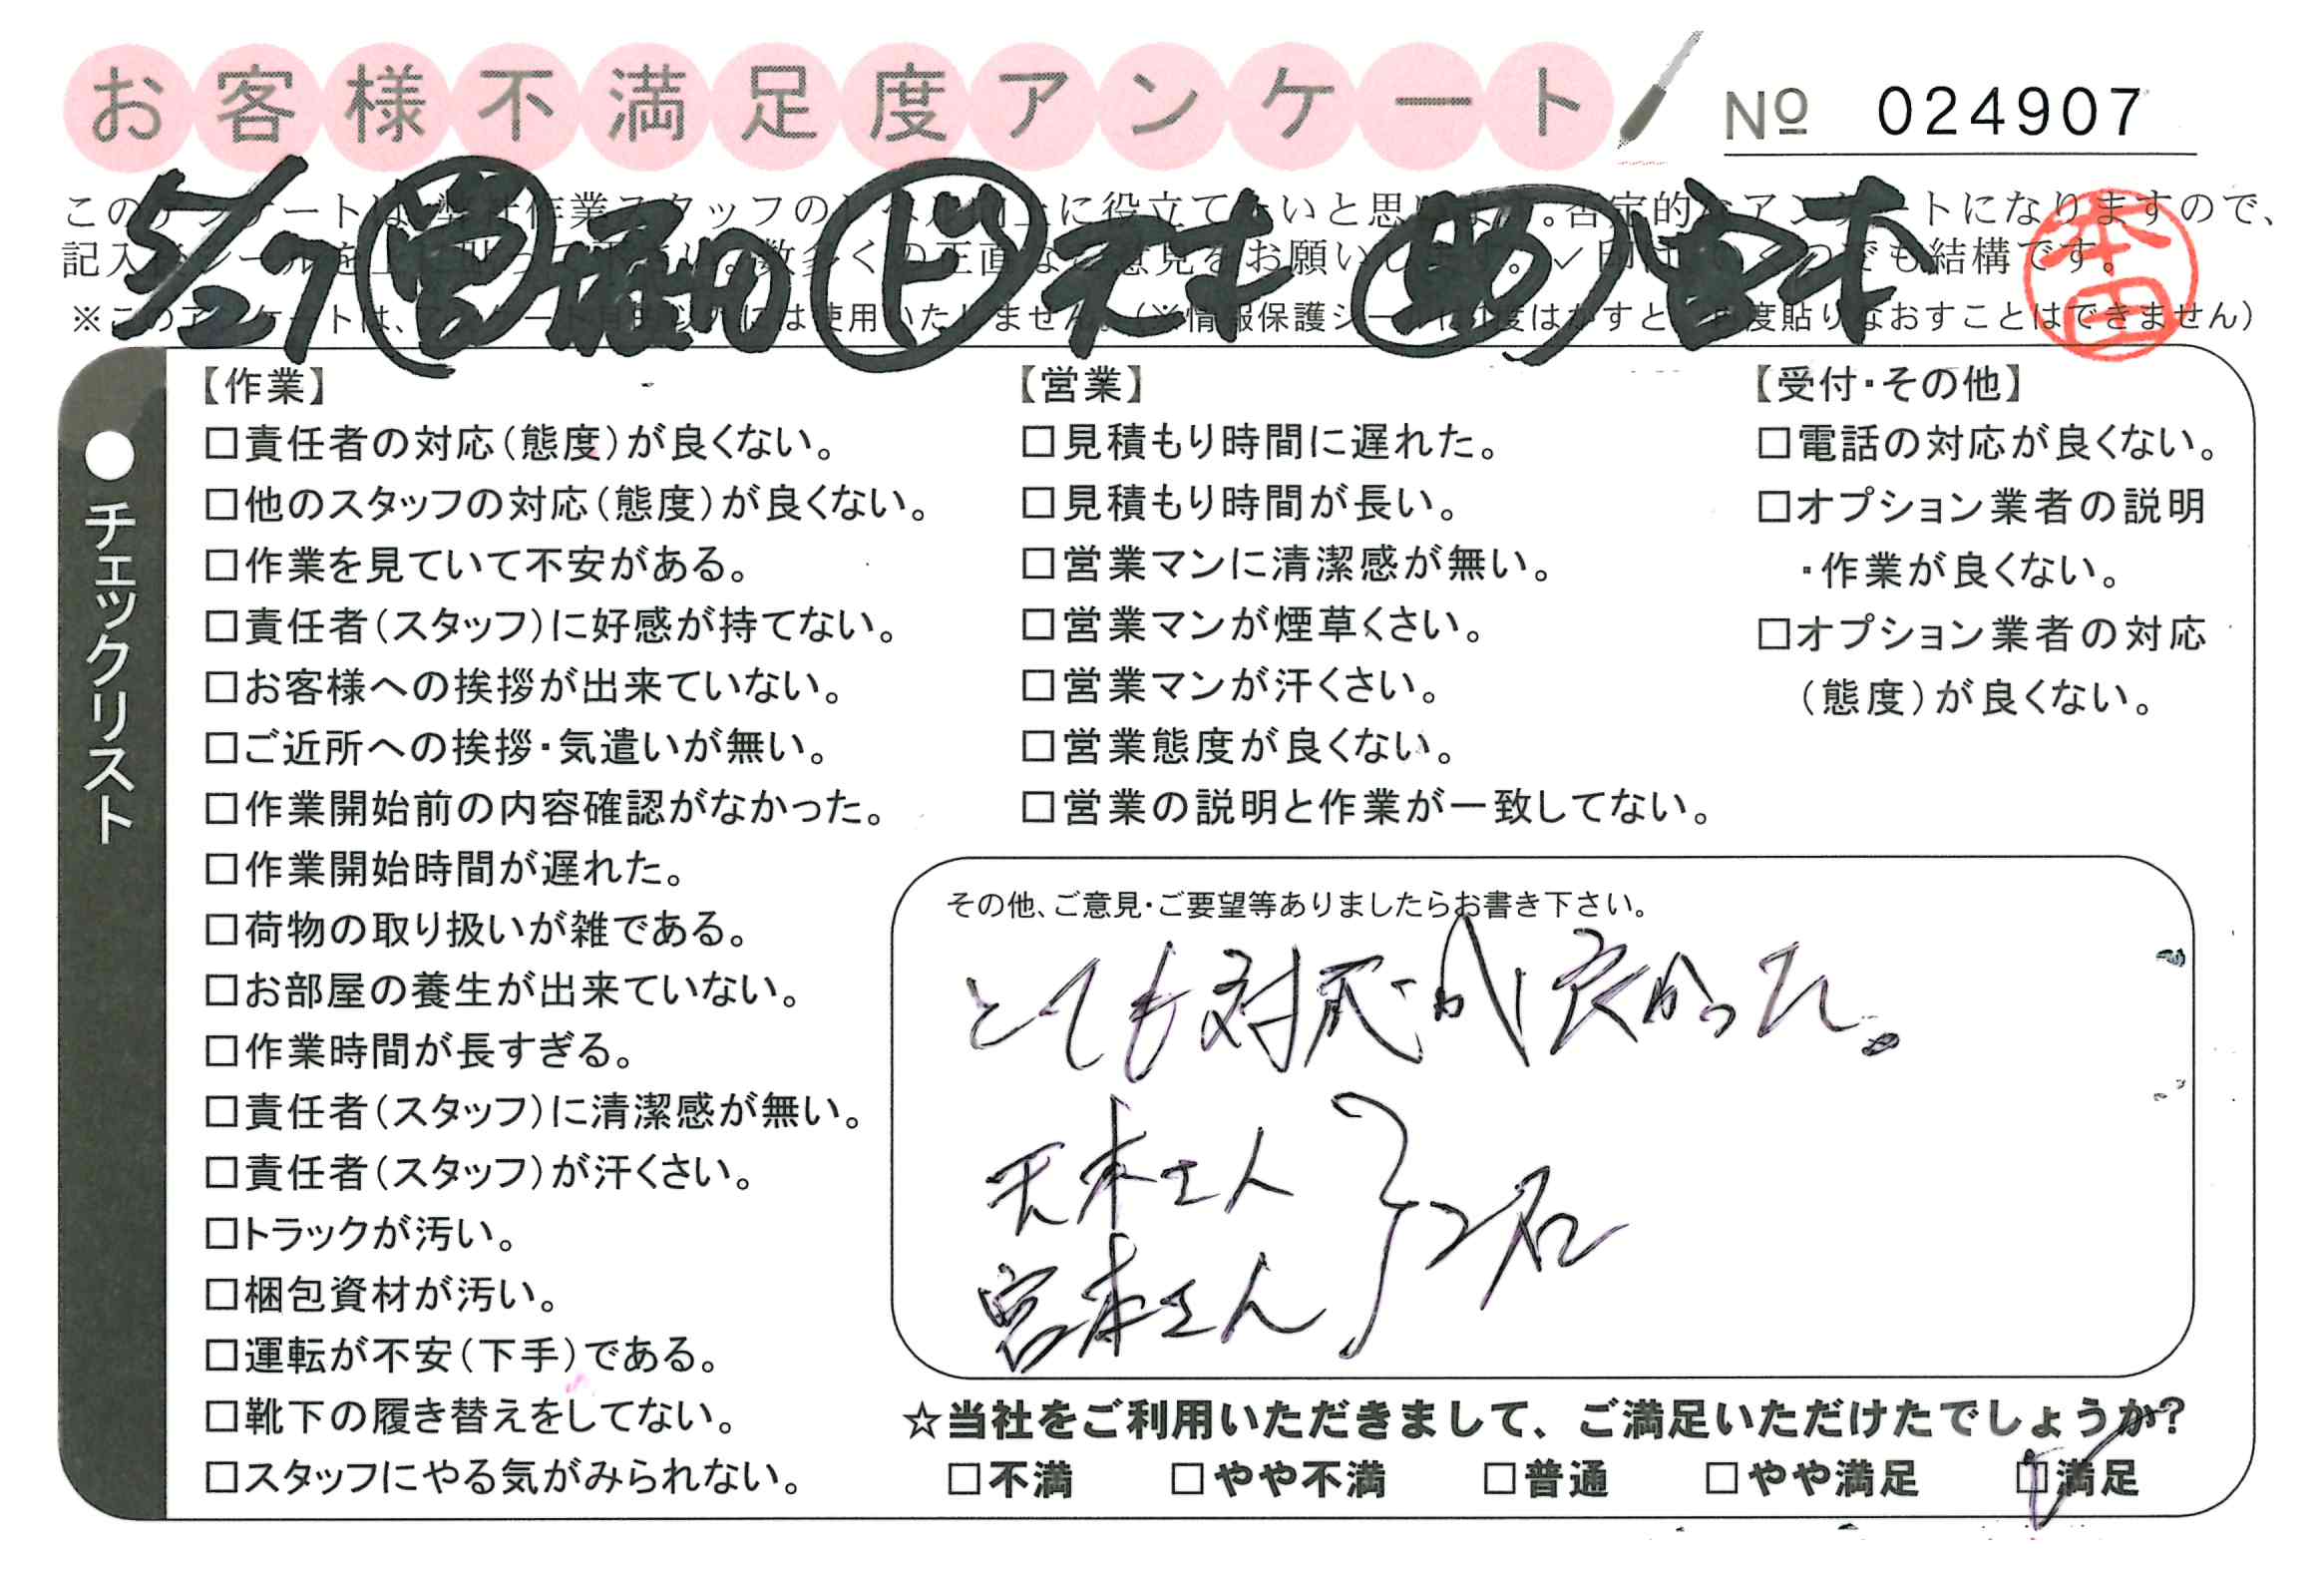 お客様不満足度アンケート
№ 024907
5/27 営 堀口 ド 天本 助 宮本
本田
●チェックリスト
【作業】
□責任者の対応(態度)が良くない。
□他のスタッフの対応(態度)が良くない。
□作業を見ていて不安がある。
□責任者(スタッフ)に好感が持てない。
□お客様への挨拶が出来ていない。
□ご近所への挨拶・気遣いが無い。
□作業開始前の内容確認がなかった。
□作業開始時間が遅れた。
□荷物の取り扱いが雑である。
□お部屋の養生が出来ていない。
□作業時間が長すぎる。
□責任者(スタッフ)に清潔感が無い。
□責任者(スタッフ)が汗くさい。
□トラックが汚い。
□梱包資材が汚い。
□運転が不安(下手)である。
□靴下の履き替えをしてない。
□スタッフにやる気がみられない。
【営業】
□見積もり時間に遅れた。
□見積もり時間が長い。
□営業マンに清潔感が無い。
□営業マンが煙草くさい。
□営業マンが汗くさい。
□営業態度が良くない。
□営業の説明と作業が一致してない。
【受付・その他】
□電話の対応が良くない。
□オプション業者の説明
・作業が良くない。
□オプション業者の対応
(態度)が良くない。
その他、ご意見・ご要望等ありましたらお書き下さい。
とても対応が良かった。
天本さん
宮本さん
2名
☆当社をご利用いただきまして、ご満足いただけたでしょうか?
□不満 □やや不満 □普通 □やや満足 ☑満足